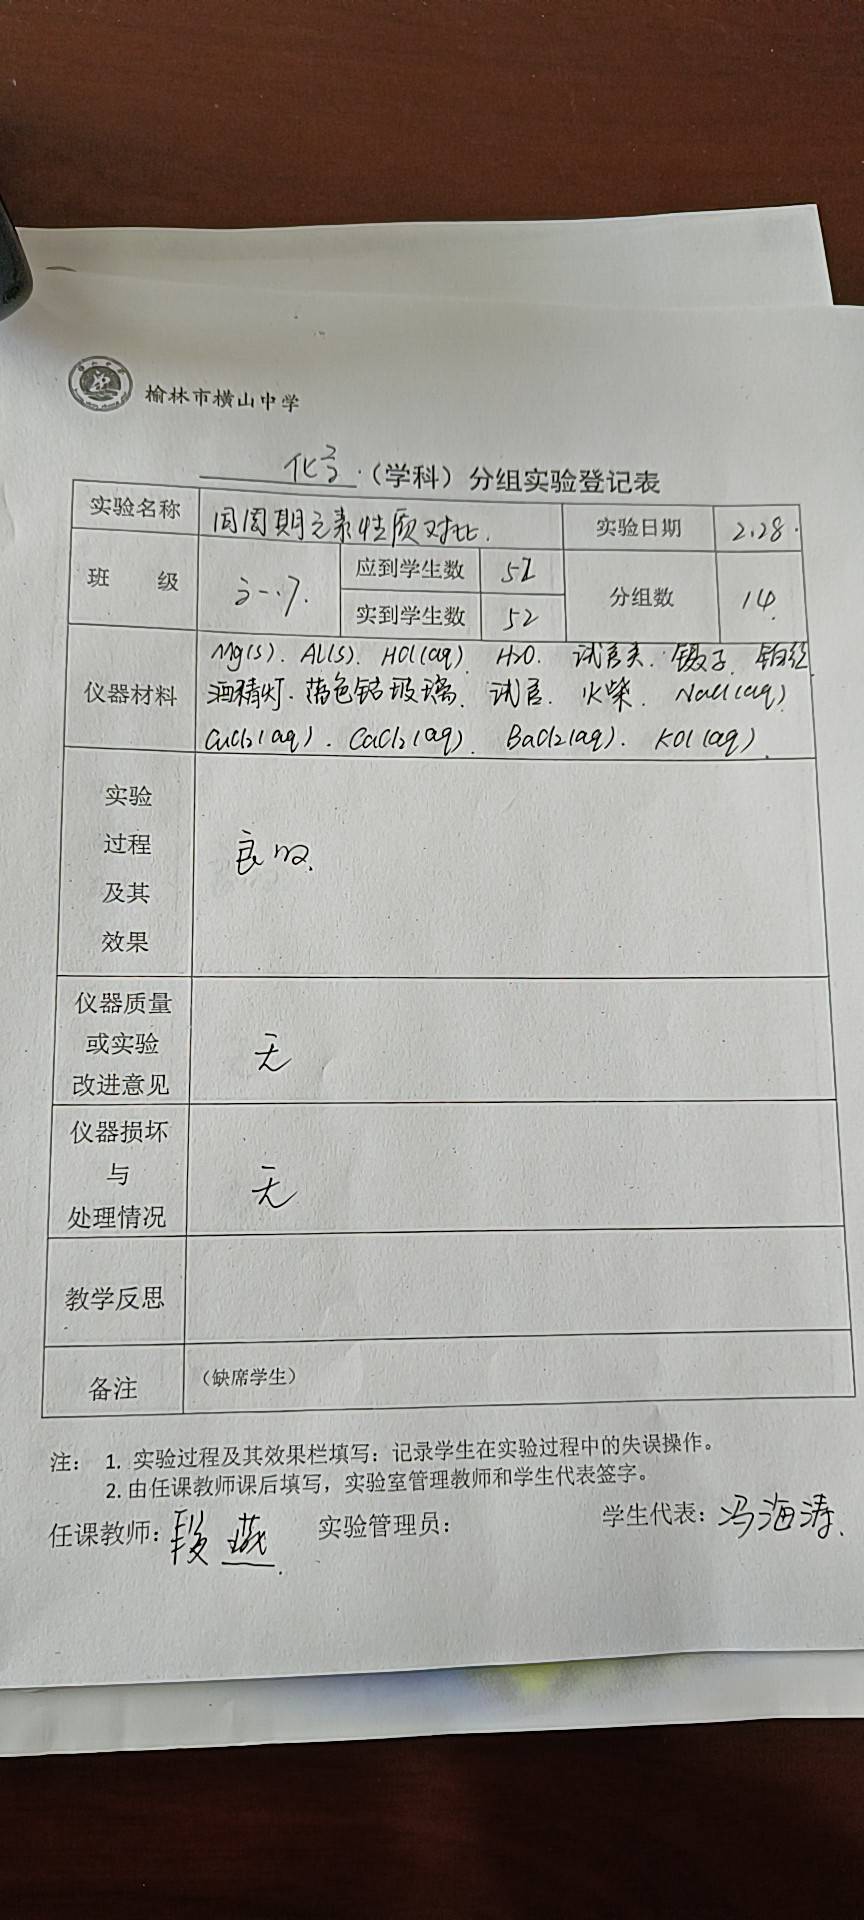 榆林市横山中学
化学(学科)分组实验登记表
实验名称 同周期元素性质对比. 实验日期 2.28.
班 级 应到学生数 52 分组数 14.
实到学生数 52
仪器材料 Mg(s). Al(s). HCl(aq) H2O. 试管夹. 镊子. 铂丝.
酒精灯. 蓝色钴玻璃. 试管. 火柴. NaCl(aq)
CuCl2(aq). CaCl2(aq). BaCl2(aq). KCl(aq).
实验
过程
及其
效果
良好.
仪器质量
或实验
改进意见
无
仪器损坏
与
处理情况
无
教学反思
备注 (缺席学生)
注: 1. 实验过程及其效果栏填写:记录学生在实验过程中的失误操作。
2. 由任课教师课后填写,实验室管理教师和学生代表签字。
任课教师: 段燕. 实验管理员: 学生代表: 冯海涛.